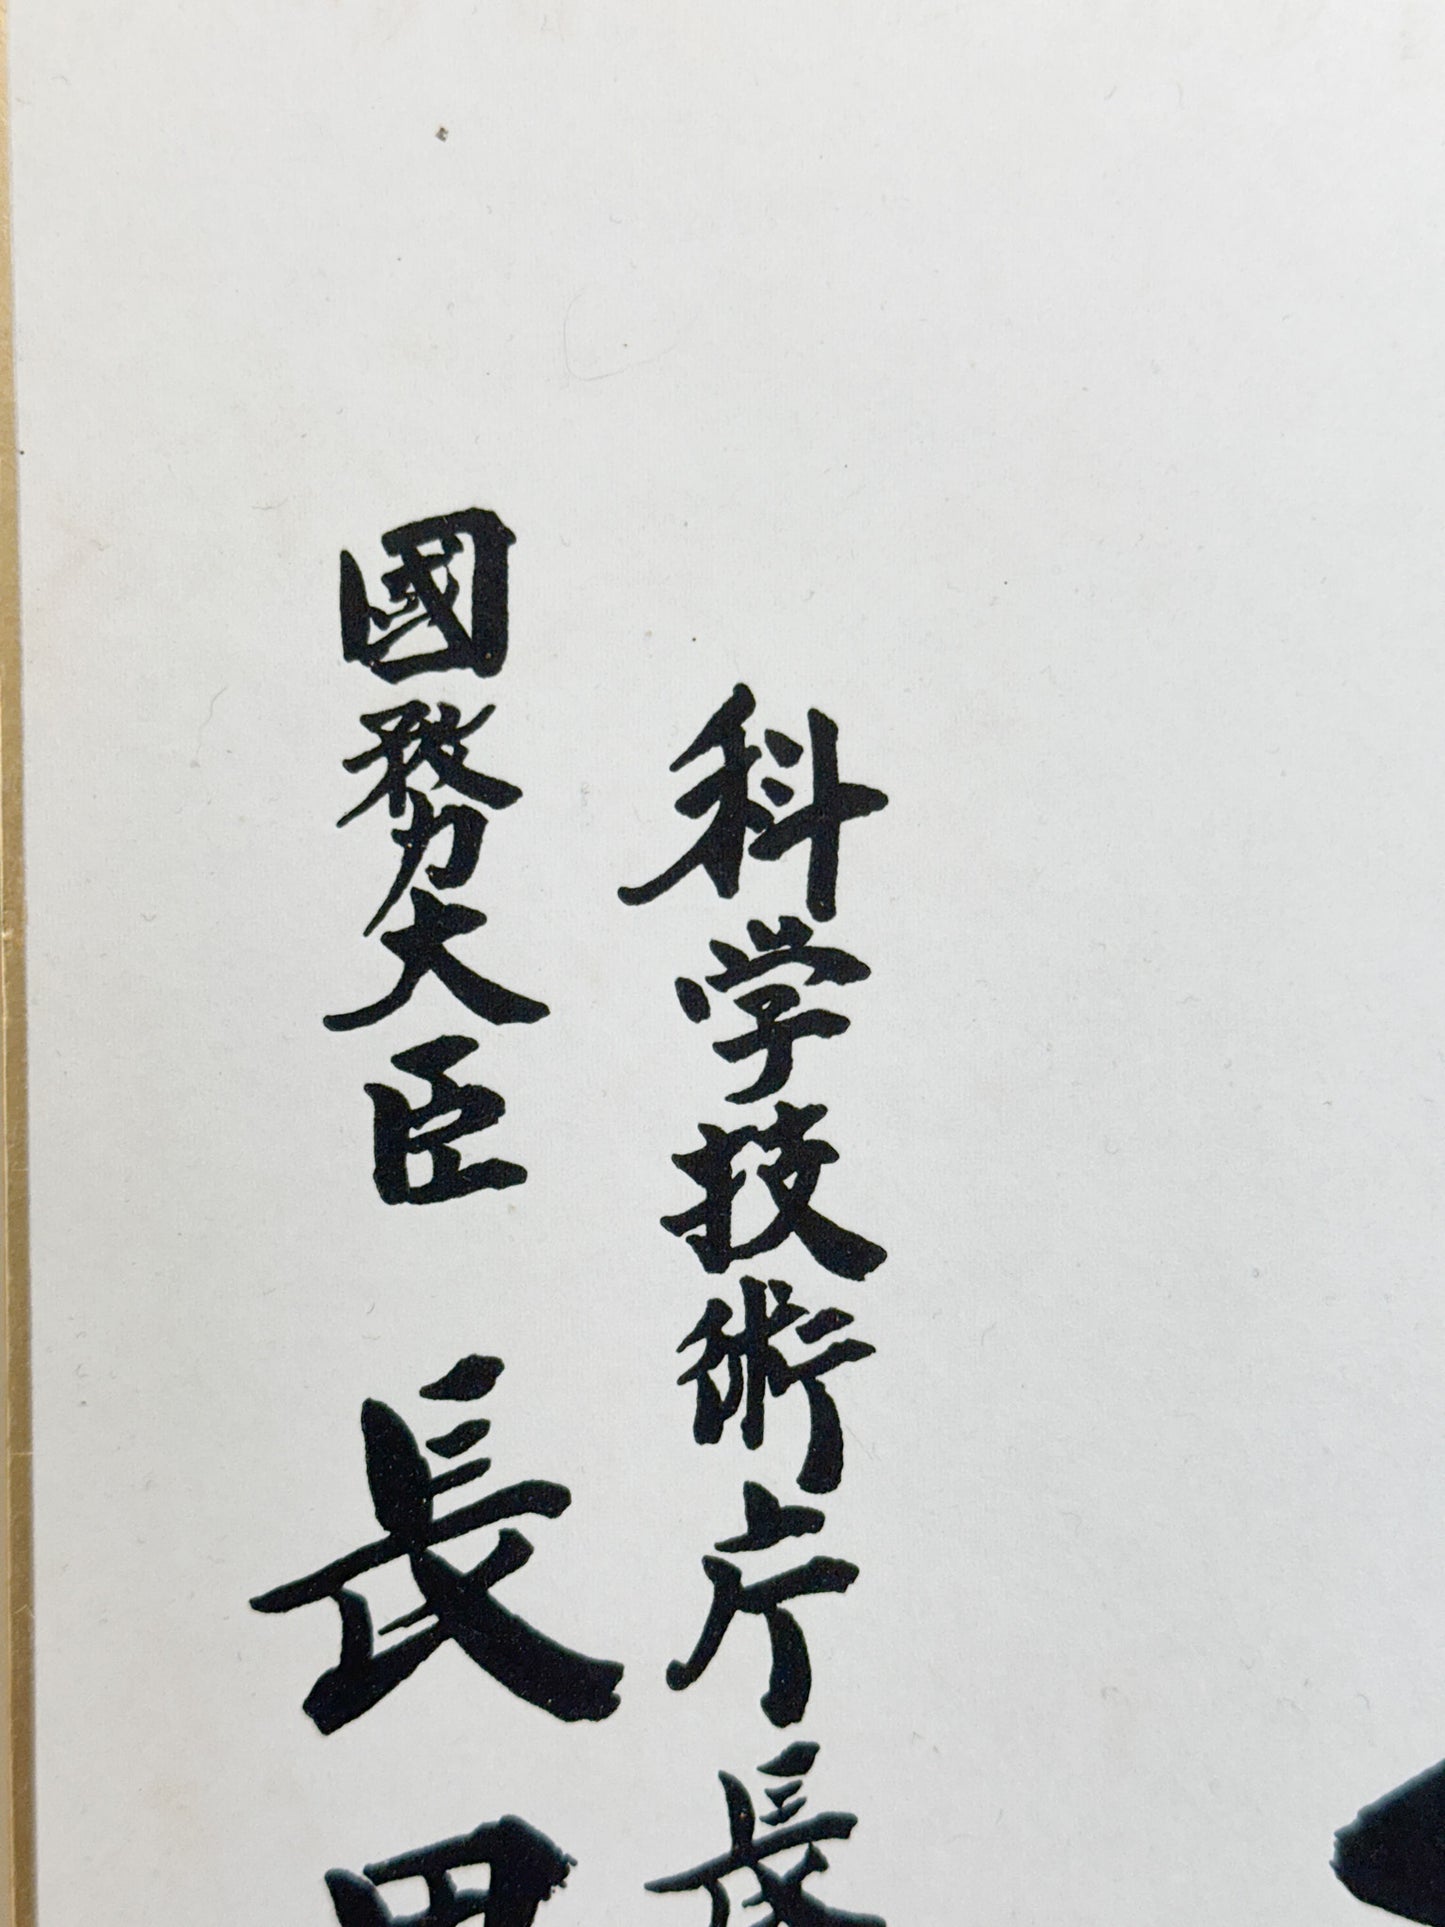 科学技術庁長
國務大臣 長